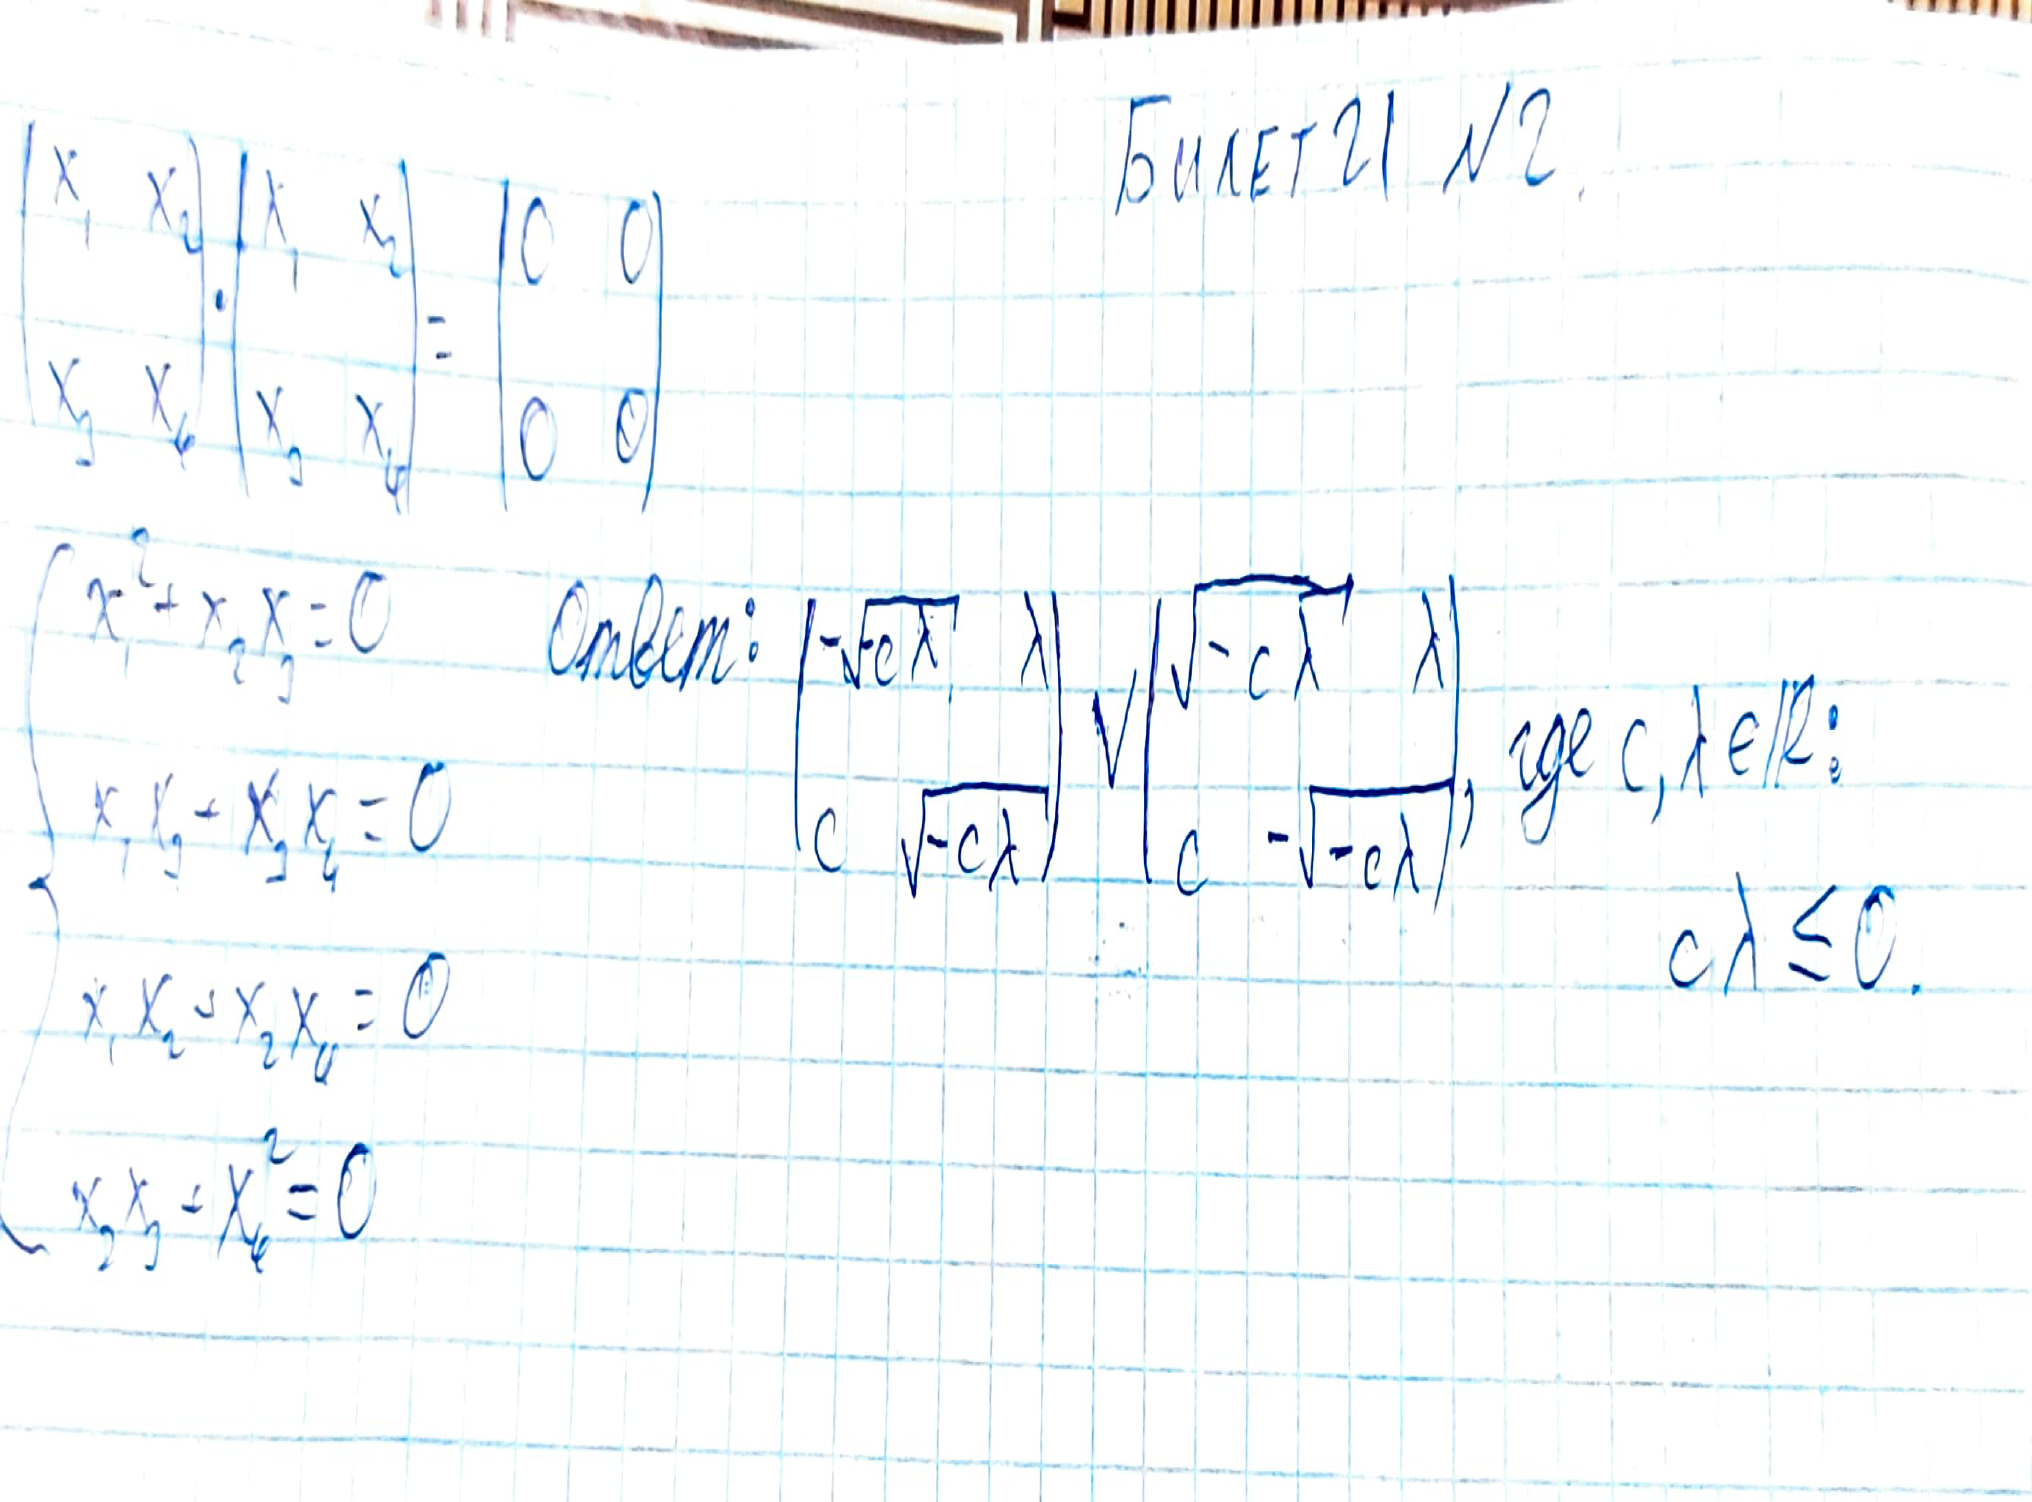 Билет 21 №2.
|x₁ x₂| · |x₁ x₂| = |0 0|
|x₃ x₄| |x₃ x₄| |0 0|
x₁² + x₂x₃ = 0
x₁x₃ + x₃x₄ = 0
x₁x₂ + x₂x₄ = 0
x₂x₃ + x₄² = 0
Ответ: |-√-cλ λ| ∨ |√-cλ λ|
|c √-cλ| |c -√-cλ|, где c, λ ∈ ℝ:
cλ ≤ 0.